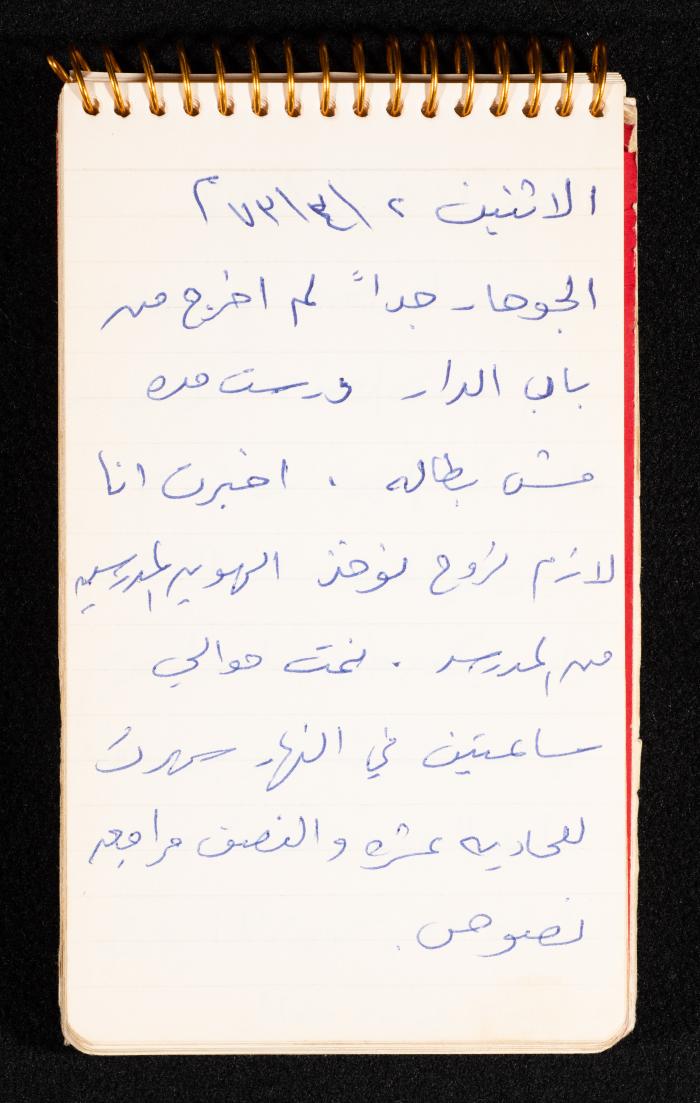 الاثنين ٢\٤\٧٣ م
الجو حار جداً لم اخرج من
باب الدار درست مده
مش بطاله . اخبرت انا
لازم نروح نوخذ الهويه المدرسيه
من المدرسه . نمت حوالي
ساعتين في النهار سهرت
للحاديه عشره والنصف مراجعه
نصوص .